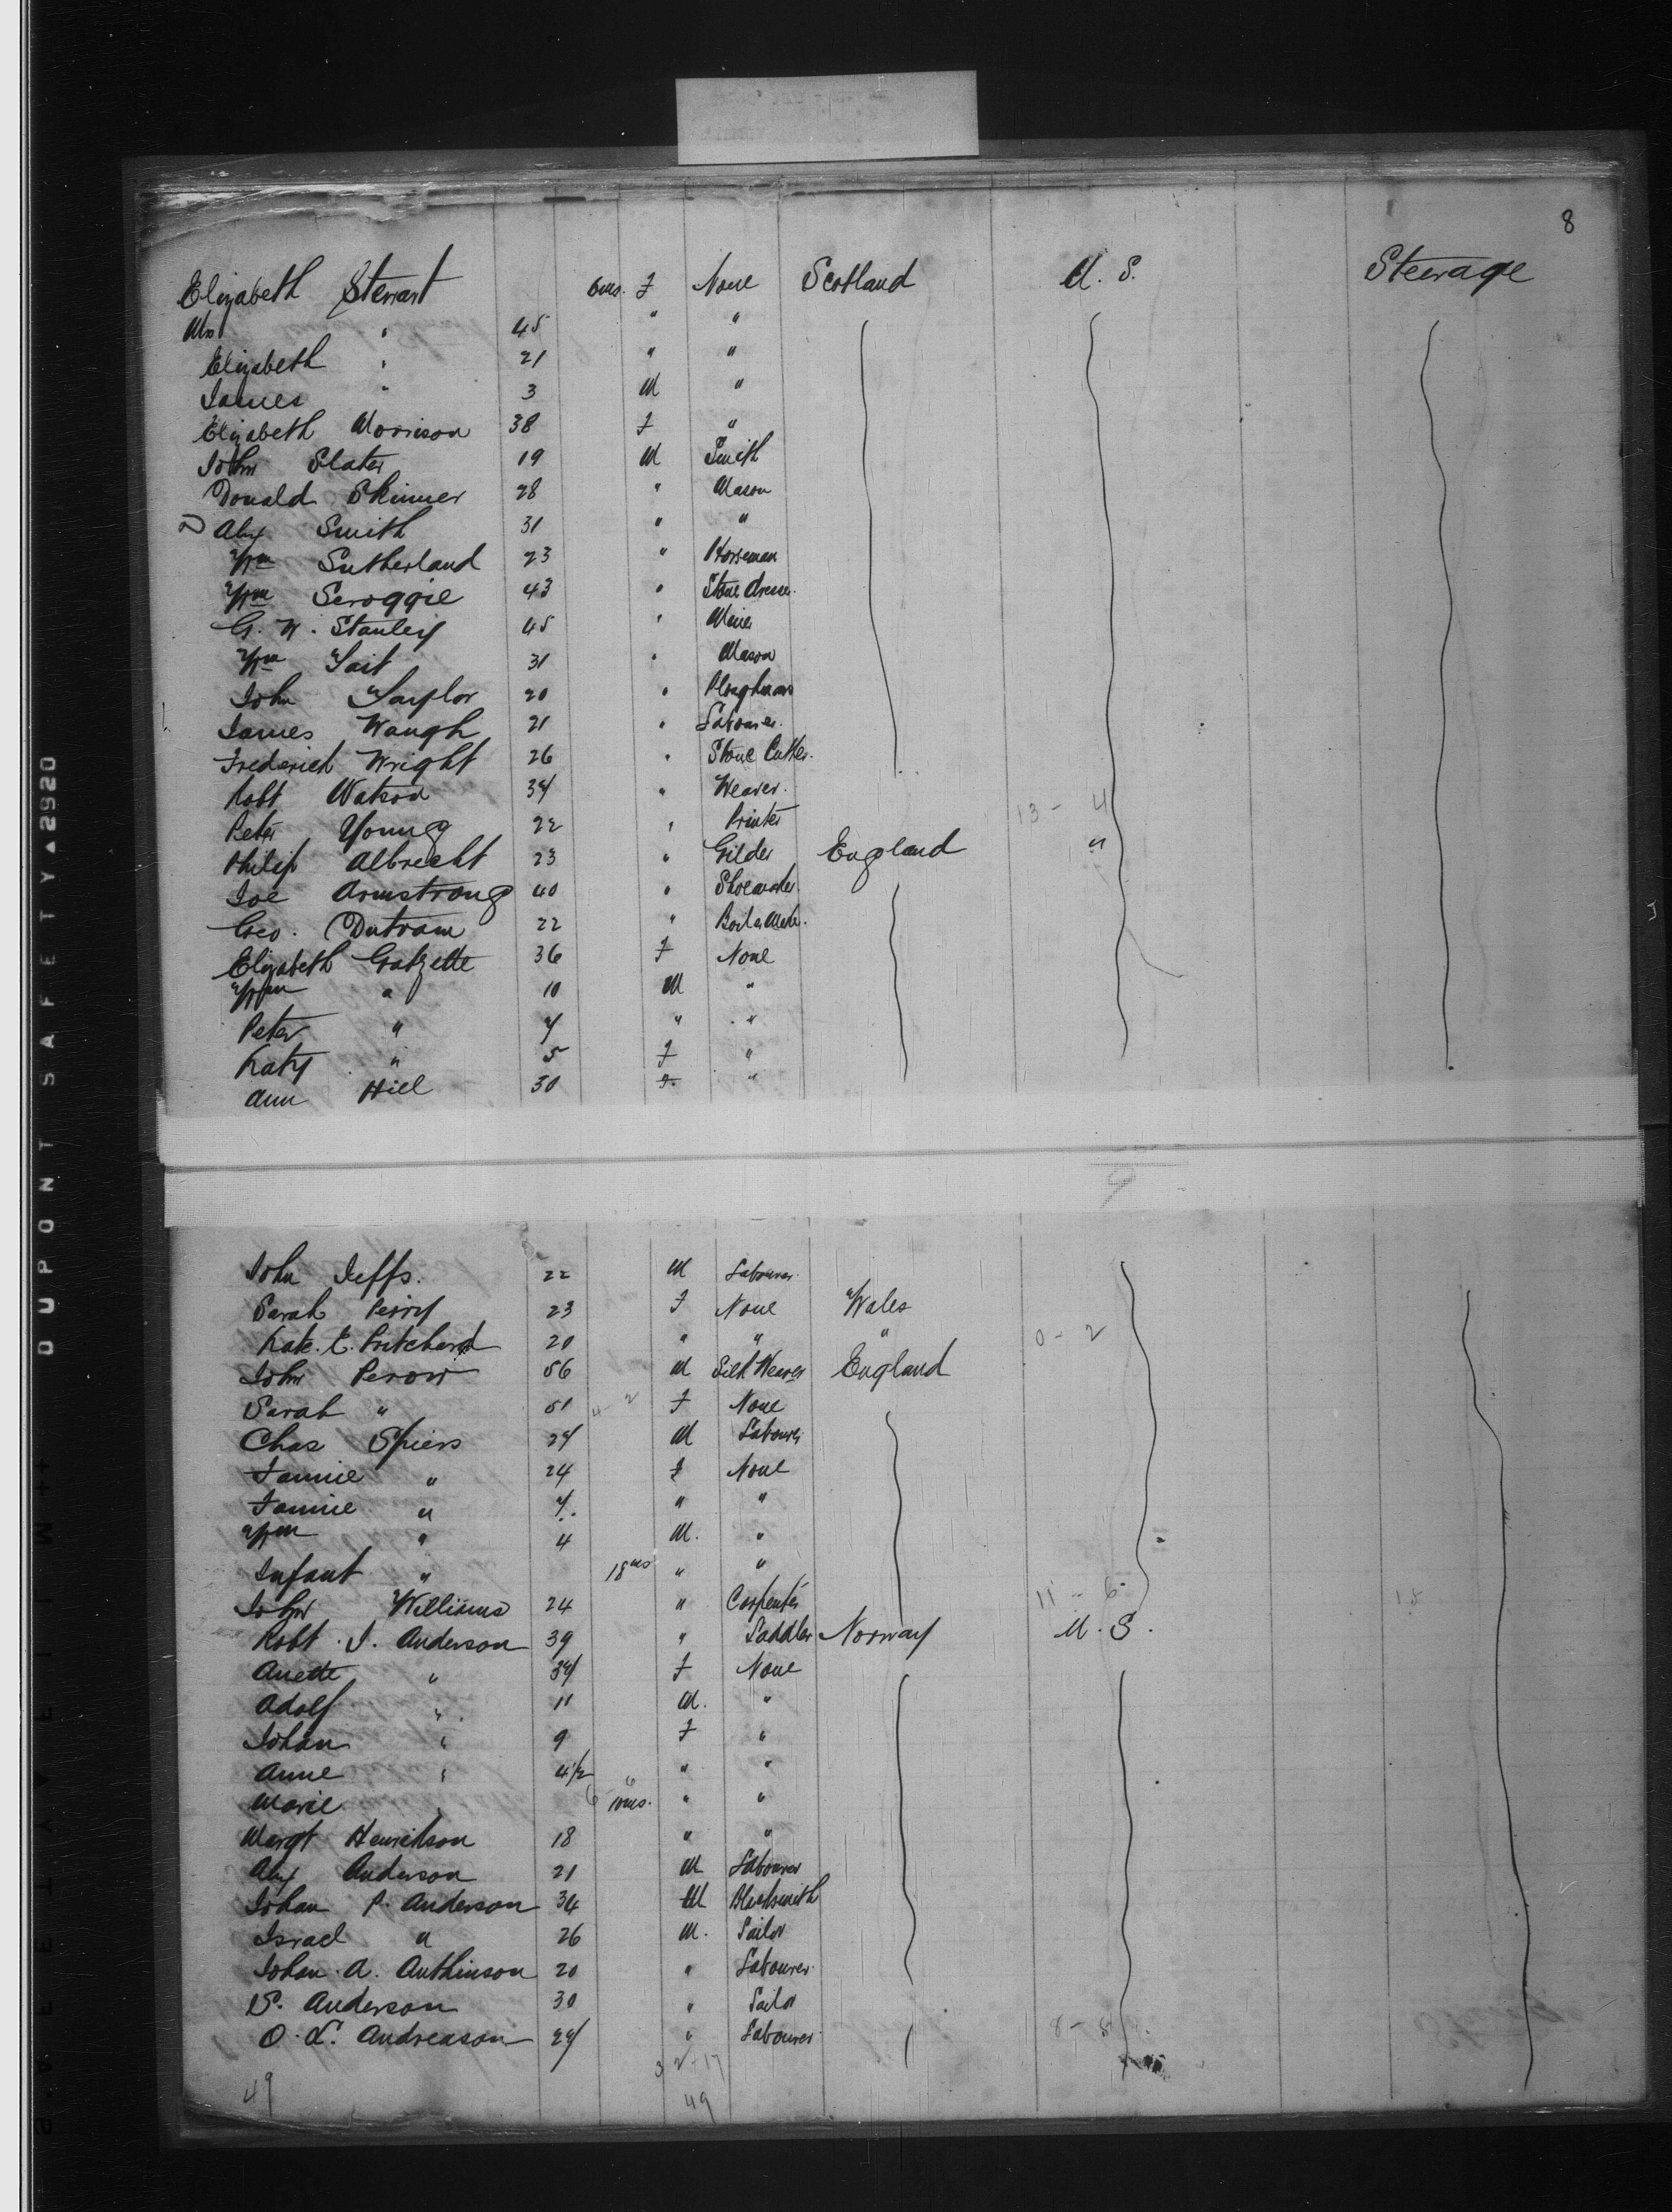 8
Elizabeth Stewart 6ms. F None Scotland U. S. Steerage
Mrs " 45 " "
Elizabeth " 21 " "
James " 3 M "
Elizabeth Morrison 38 F "
John Slater 19 M Smith
Donald Skinner 28 " Mason
Alex Smith 31 " "
Wm Sutherland 23 " Horseman
Wm Scroggie 43 " Stone dresser.
G. W. Stanley 45 " Miner
Wm Tait 31 " Mason
John Taylor 20 " Ploughman
James Waugh 21 " Labourer.
Frederick Wright 26 " Stone Cutter.
Robt Watson 34 " Weaver.
Peter Young 22 " Printer 13 - 4
Philip Albrecht 23 " Gilder England "
Joe Armstrong 40 " Shoemaker
Geo. Outram 22 " Boiler Maker.
Elizabeth Gatzette 36 F None
Wm " 10 M "
Peter " 7 " "
Katy " 5 F "
Ann Hill 30 F. "
9
John Jeffs. 22 M Labourer.
Sarah Perry 23 F None Wales
Kate. E. Pritchard 20 " " " 0 - 2
John Perow 56 M Silk Weaver England
Sarah " 51 F None
Chas Spiers 27 M Labourer
Fannie " 24 F None
Fannie " 7. " "
Wm " 4 M. "
Infant " 18ms " "
John Williams 24 " Carpenter 11 - 6 18
Robt. J. Anderson 39 " Saddler Norway U. S.
Anette " 37 F None
Adolf " 11 M. "
Johan " 9 F "
Anne " 4 1/2 " "
Marie " 10ms. " "
Margt Henrikson 18 " "
Alex Anderson 21 M Labourer
Johan P. Anderson 34 M Blacksmith
Israel " 26 M. Sailor
Johan. A. Anthinson 20 " Labourer.
S. Anderson 30 " Sailor
O. L. Andreason 27 " Labourer 8 - 8
32 - 17
49 49